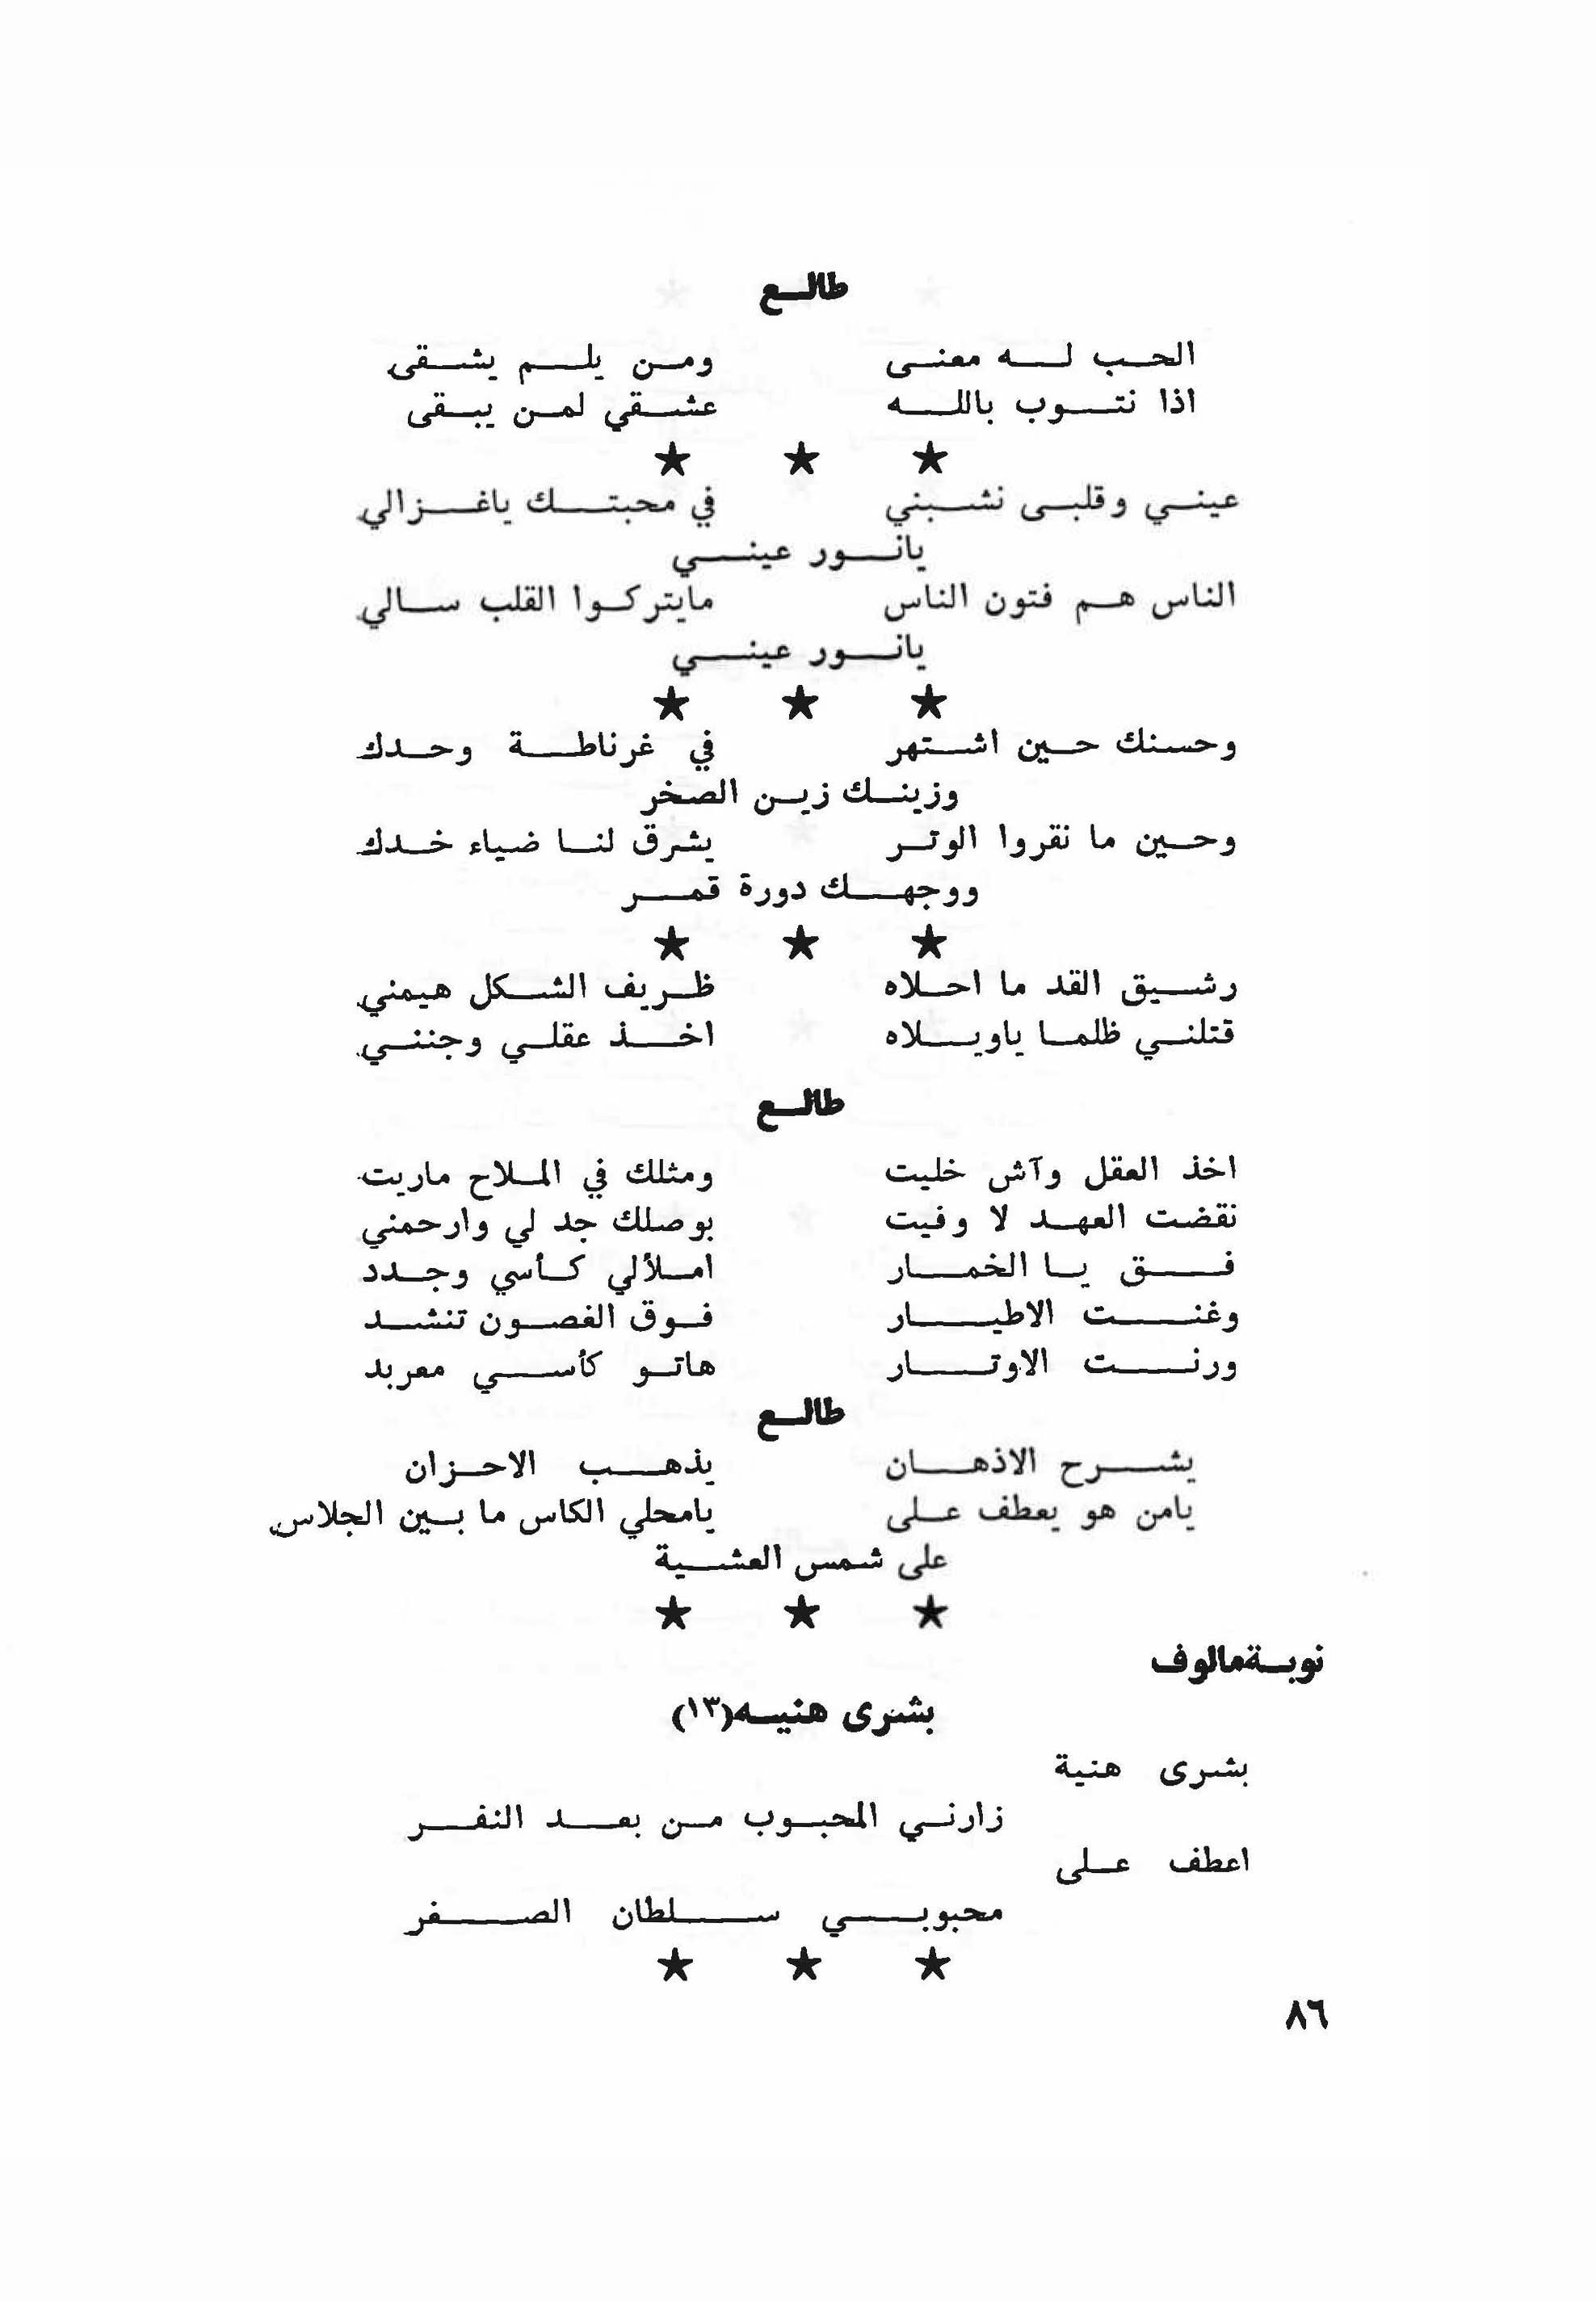 طالع
الحب له معنى ومن يلم يشقى
اذا نتوب بالله عشقي لمن يبقى
★ ★ ★
عيني وقلبى نشبني في محبتك ياغزالي
يانور عيني
الناس هم فتون الناس مايتركوا القلب سالي
يانور عيني
★ ★ ★
وحسنك حين اشتهر في غرناطة وحدك
وزينك زين الصخر
وحين ما نقروا الوتر يشرق لنا ضياء خدك
ووجهك دورة قمر
★ ★ ★
رشيق القد ما احلاه ظريف الشكل هيمني
قتلني ظلما ياويلاه اخذ عقلي وجنني
طالع
اخذ العقل وآش خليت ومثلك في الملاح ماريت
نقضت العهد لا وفيت بوصلك جد لي وارحمني
فق يا الخمار املألي كأسي وجدد
وغنت الاطيار فوق الغصون تنشد
ورنت الاوتار هاتو كأسي معربد
طالع
يشرح الاذهان يذهب الاحزان
يامن هو يعطف على يامحلي الكاس ما بين الجلاس
على شمس العشية
★ ★ ★
نوبة مالوف
بشرى هنيه (١٣)
بشرى هنية
زارني المحبوب من بعد النفر
اعطف على
محبوبي سلطان الصفر
★ ★ ★
٨٦